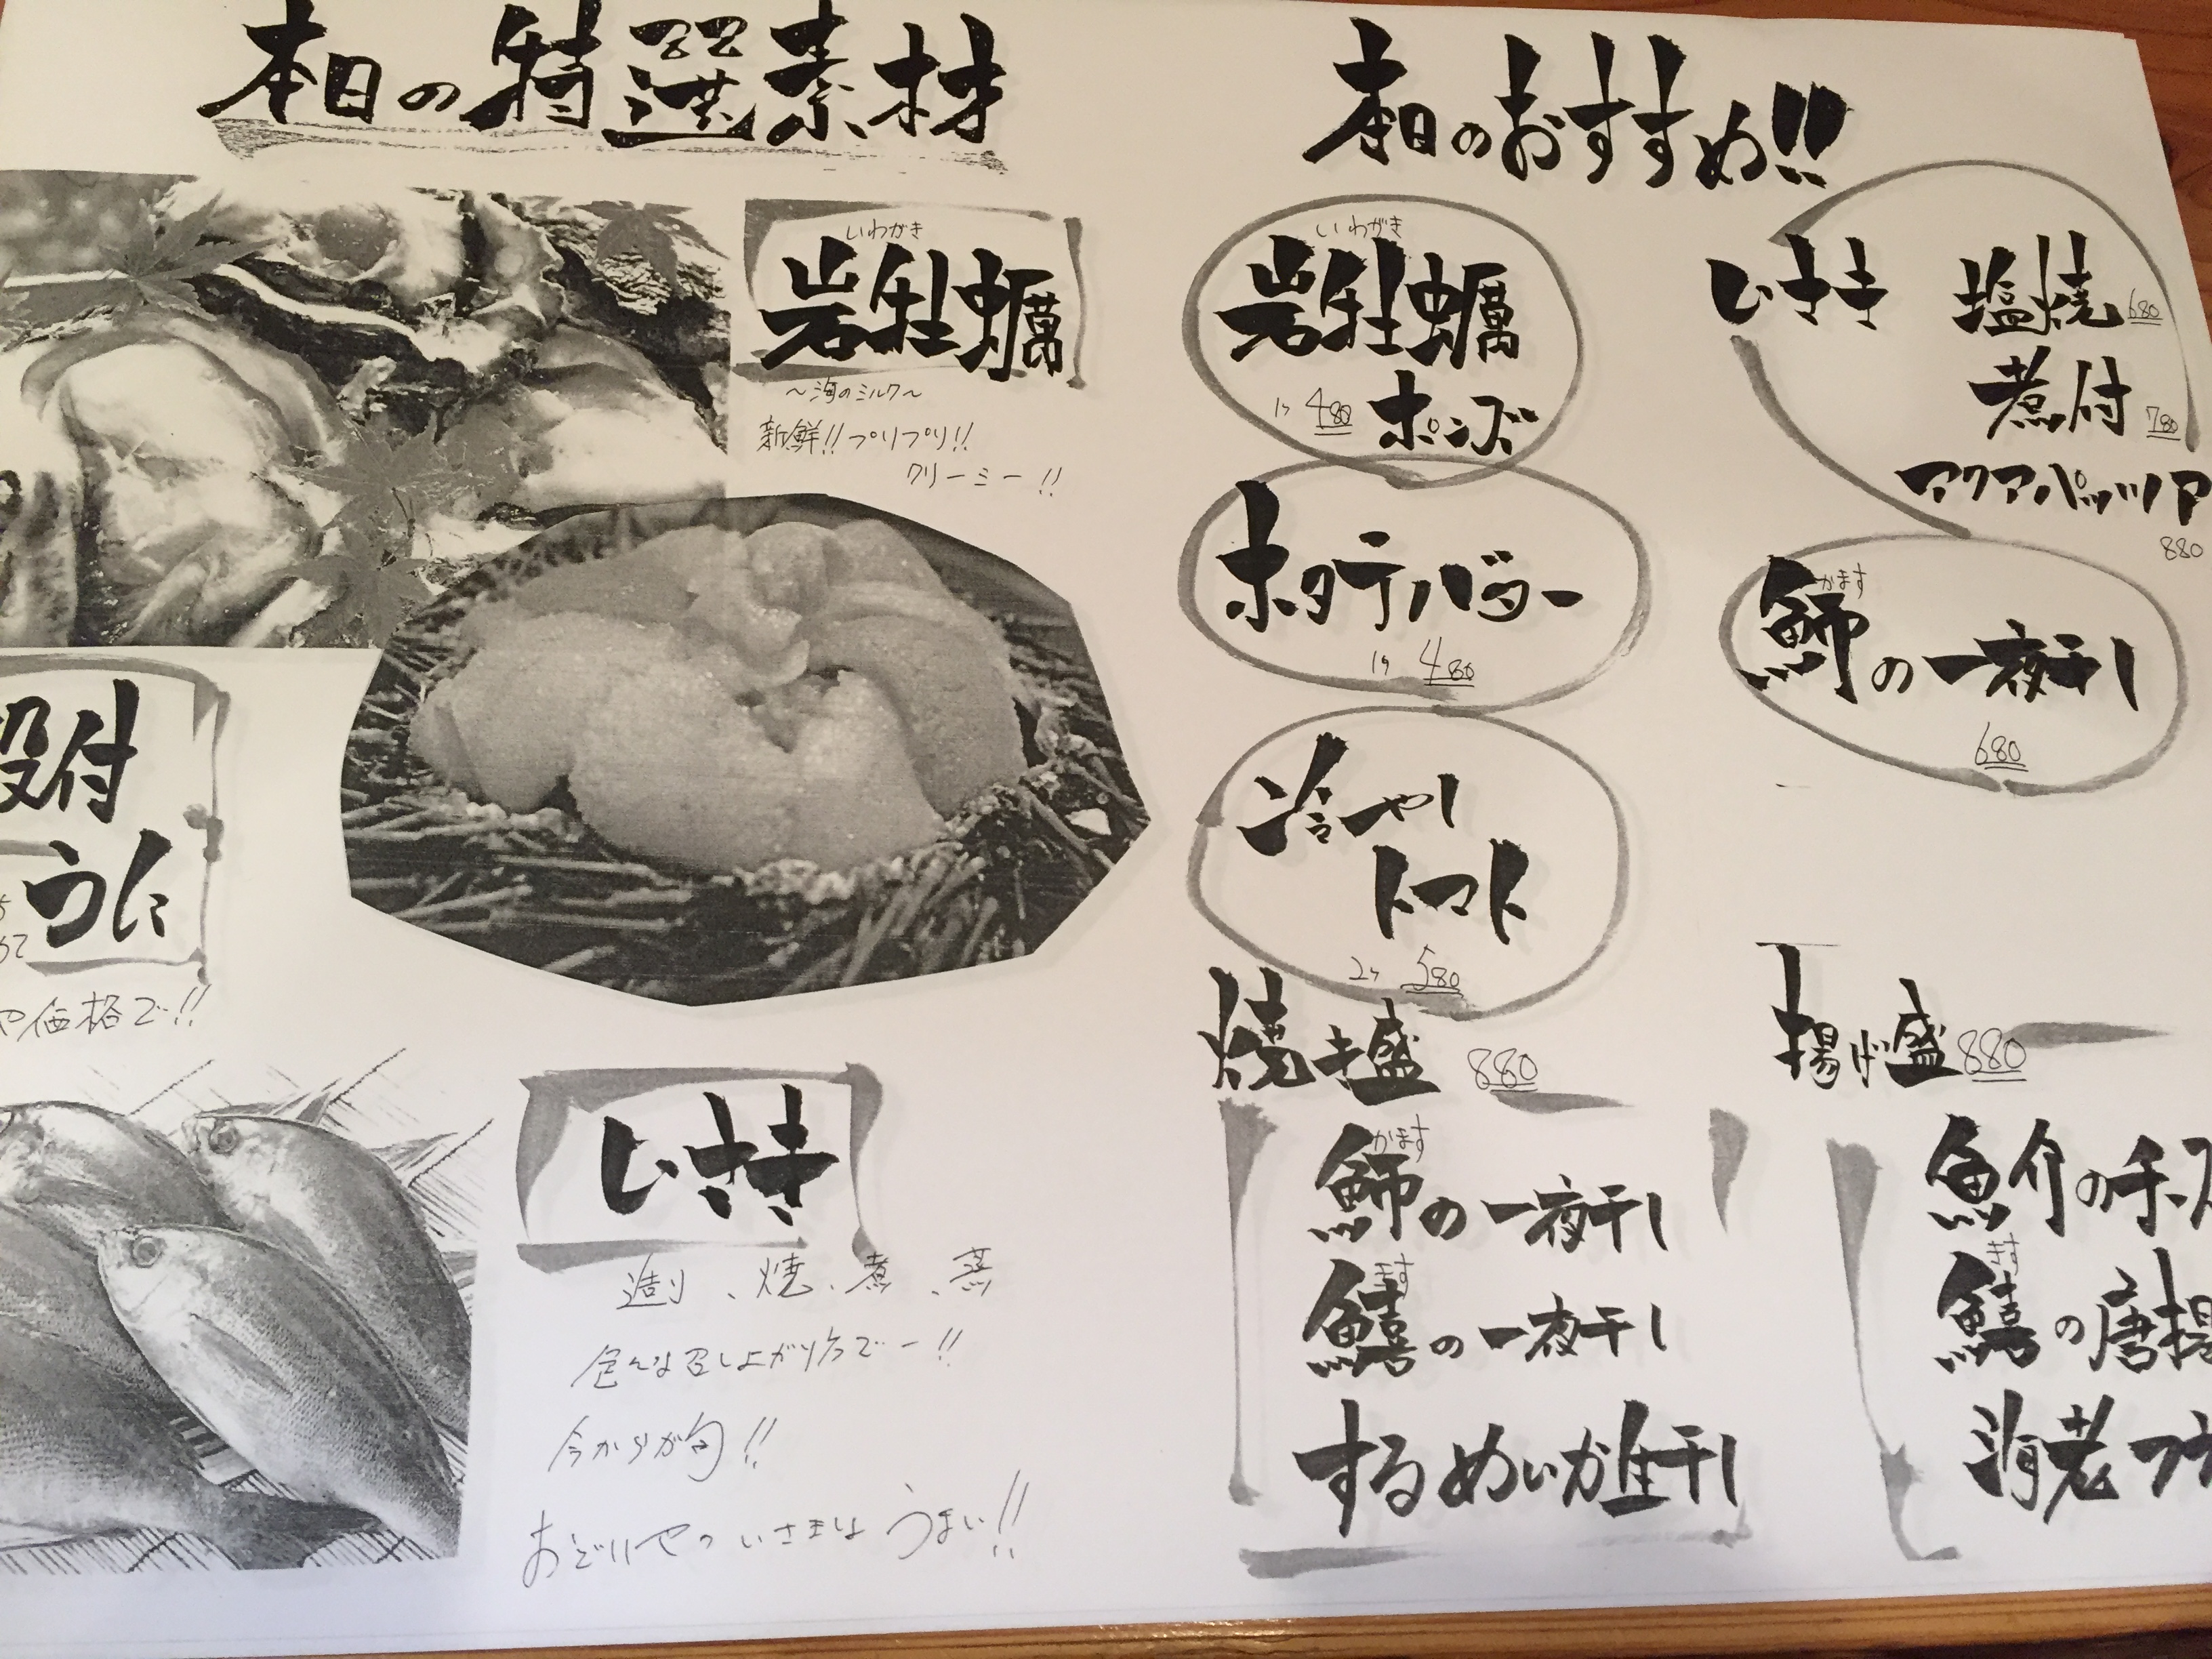 本日の特選素材
いわがき
岩牡蠣
〜海のミルク〜
新鮮!!プリプリ!!
クリーミー!!
殻付
うに
価格で!!
いさき
造り、焼、煮、蒸
色んな召し上がり方でー!!
今からが旬!!
いさきは うまい!!
本日のおすすめ!!
いわがき
岩牡蠣
1ケ 480 ポンズ
ホタテバター
1ケ 480
冷やし
トマト
2ケ 580
いさき 塩焼 680
煮付 780
アクアパッツア
880
かます
魳の一夜干し
680
焼き盛 880
かます
魳の一夜干し
きす
鱚の一夜干し
するめいか生干し
揚げ盛 880
魚介のチーズ
きす
鱚の唐揚
海老フ